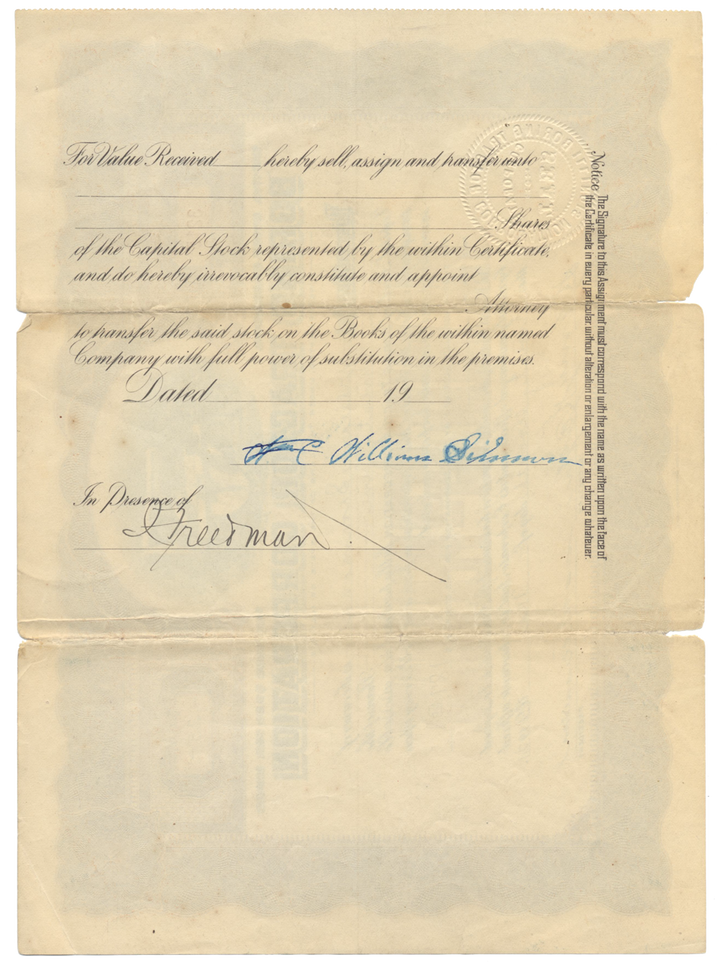 For Value Received hereby sell, assign and transfer unto
Shares
of the Capital Stock represented by the within Certificate,
and do hereby irrevocably constitute and appoint
Attorney
to transfer the said stock on the Books of the within named
Company with full power of substitution in the premises.
Dated 19
William
In Presence of
Freedman
Notice. The Signature to this Assignment must correspond with the name as written upon the face of
the Certificate in every particular without alteration or enlargement or any change whatever.